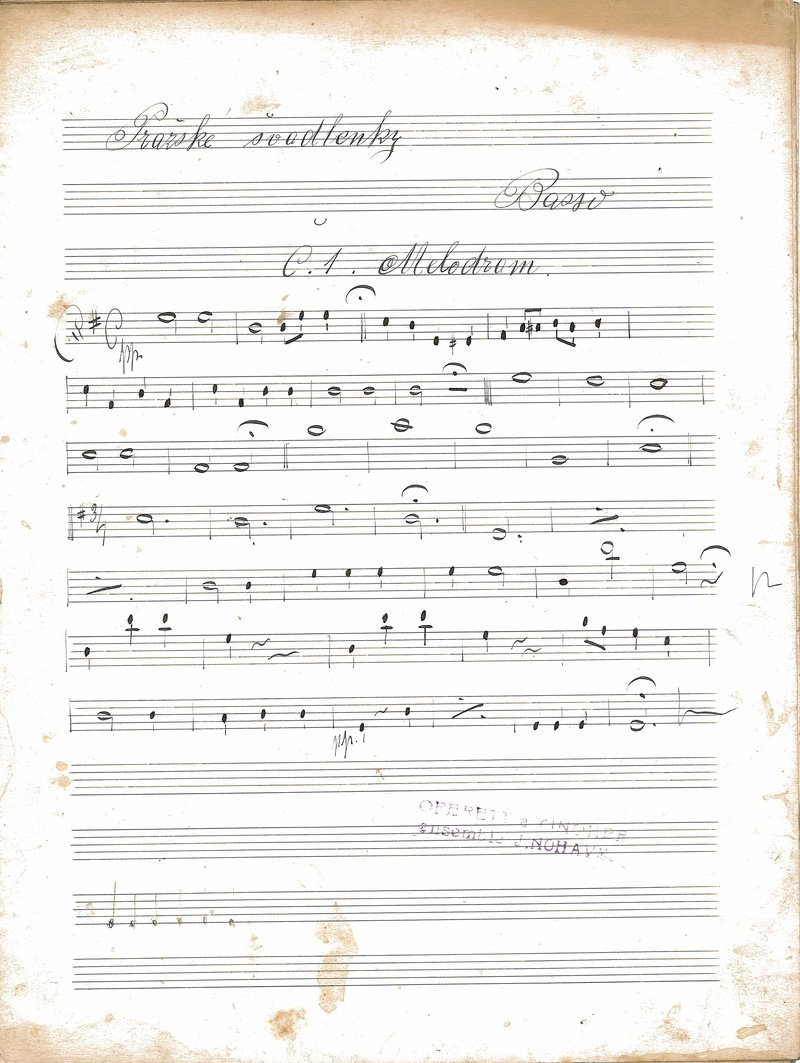 Pražské švadlenky
Basso
Č. 1. Melodram.
pp.
3/4
pp.
OPERETT a
ensemble J. NOHAVY